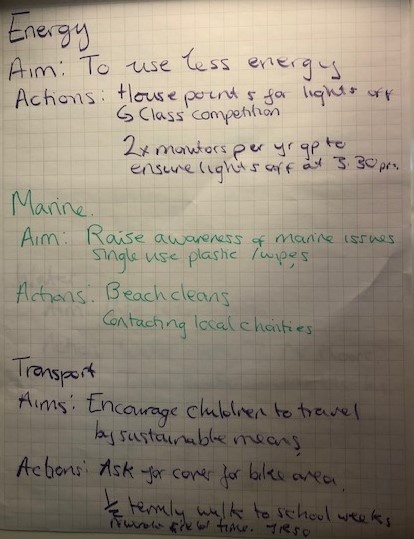 Energy
Aim: To use less energy
Actions: House points for lights off
↳ Class competition
2x monitors per yr gp to
ensure lights off at 3.30pm.
Marine.
Aim: Raise awareness of marine issues
single use plastic / wipes
Actions: Beach cleans
Contacting local charities
Transport
Aims: Encourage children to travel
by sustainable means
Actions: Ask for cover for bike area.
½ termly walk to school weeks
time.